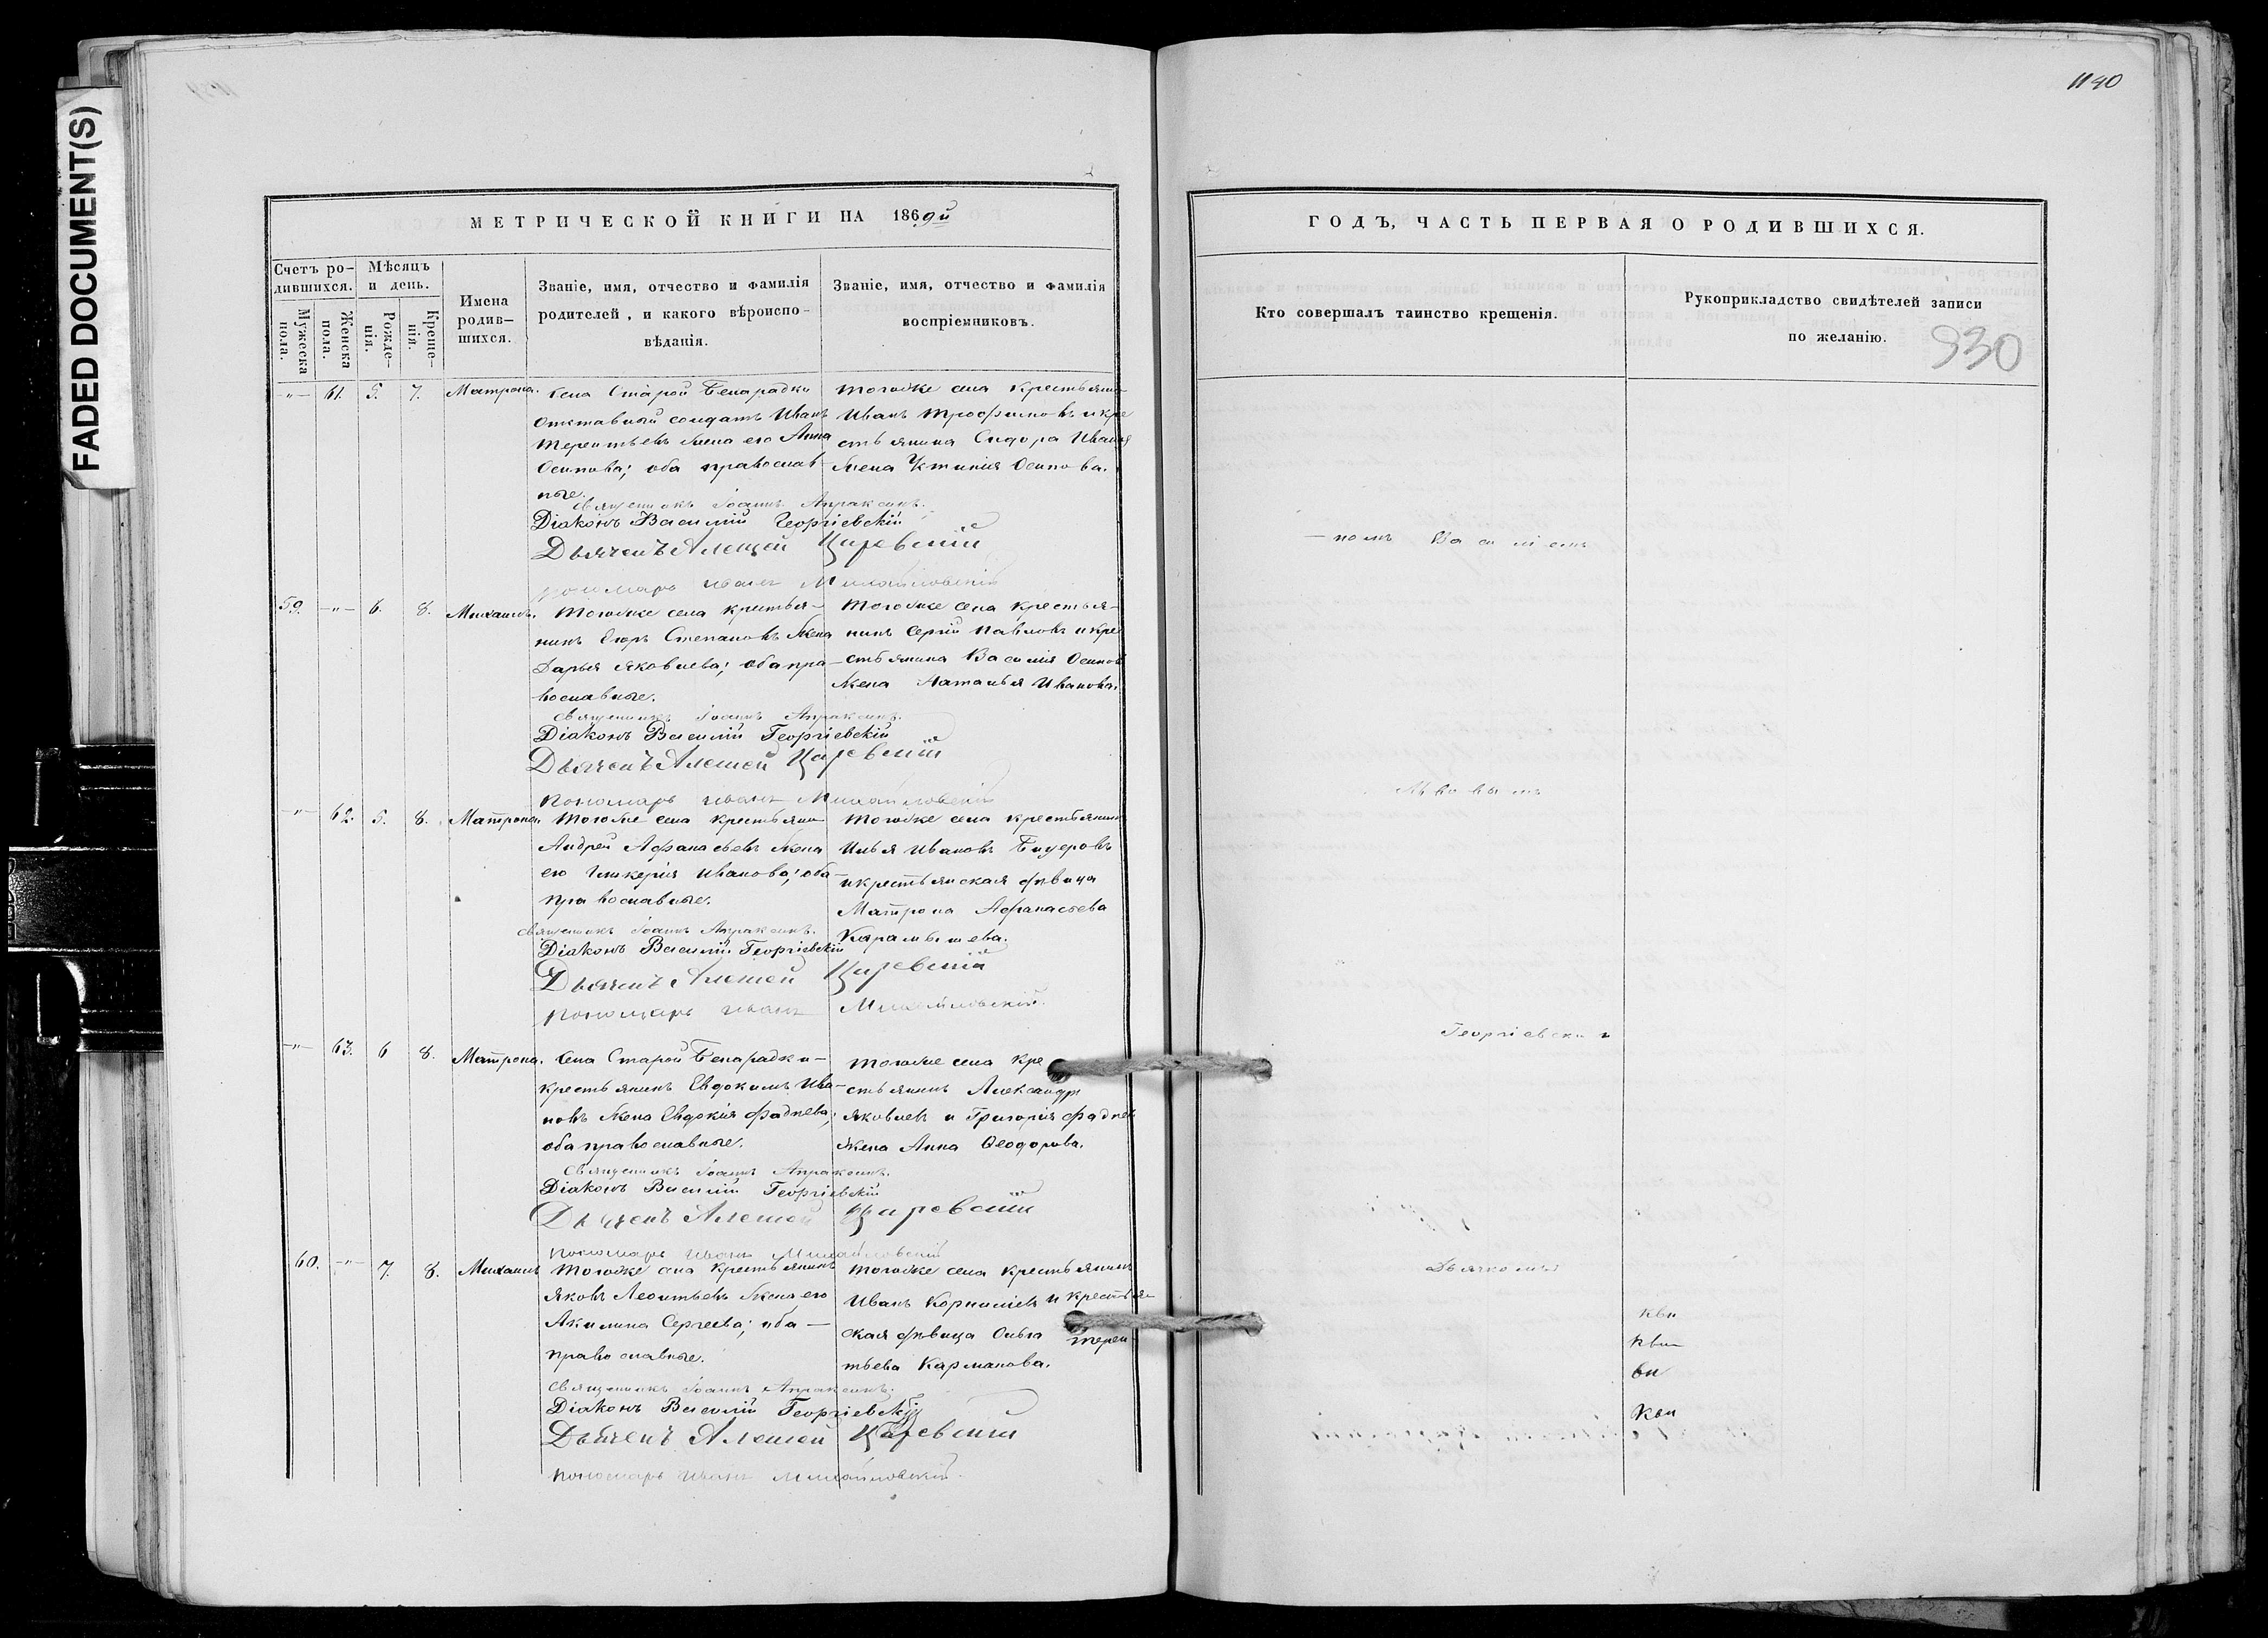 FADED DOCUMENT(S)
1140
МЕТРИЧЕСКОЙ КНИГИ НА 1869й
Счетъ ро-
дившихся.
Мужеска
пола.
Женска
пола.
Мѣсяцъ
и день.
Рожде-
нія.
Креще-
нія.
Имена
родив-
шихся.
Званіе, имя, отчество и фамилія
родителей, и какого вѣроиспо-
вѣданія.
Званіе, имя, отчество и фамилія
воспріемниковъ.
-"- 61. 5. 7. Матрона.
Села Старой
отставный солдатъ Иванъ
Терентьевъ жена его Анна
Осипова; оба православ-
ные.
тогоже села крестьянинъ
Иванъ Трофимовъ и кре
стьянина Сидора Иванова
жена Устинія Осипова.
Священникъ Іоаннъ Апраксинъ.
Діаконъ Василій Георгіевскій
Дьячекъ Алексей Царевскій
пономарь Иванъ Михайловскій
59. -"- 6. 8. Михаилъ.
Тогоже села крестья-
нинъ Егоръ Степановъ жена
Дарья Яковлева; оба пра-
вославные.
Тогоже села крестья-
нинъ Сергій Павловъ и кре
стьянина Василія Осипов
жена Наталья Иванова.
Священникъ Іоаннъ Апраксинъ.
Діаконъ Василій Георгіевскій
Дьячекъ Алексей Царевскій
пономарь Иванъ Михайловскій
-"- 62. 5. 8. Матрона.
Тогоже села крестьянин
Андрей Афанасьевъ жена
его Гликерія Иванова; оба
православные.
Тогоже села крестьянин
Илья Ивановъ
и крестьянская дѣвица
Матрона Афанасьева
Карамышева.
Священникъ Іоаннъ Апраксинъ.
Діаконъ Василій Георгіевскій
Дьячекъ Алексей Царевскій
пономарь Иванъ Михайловскій.
-"- 63. 6 8. Матрона.
Села Старой
крестьянинъ Евдокимъ Ива-
новъ жена Евдокія Фадѣева;
оба православные.
тогоже села кре
стьянинъ Александръ
Яковлевъ и Григорія Фадѣев
жена Анна Ѳеодорова.
Священникъ Іоаннъ Апраксинъ.
Діаконъ Василій Георгіевскій
Дьячекъ Алексей Царевскій
пономарь Иванъ Михайловскій
60. -"- 7. 8. Михаилъ
Тогоже села крестьянинъ
Яковъ Леонтьевъ жена его
Акилина Сергеева; оба —
православные.
Тогоже села крестьянинъ
Иванъ Корниліевъ и крестьян
ская дѣвица Ольга Терен-
тьева Карманова.
Священникъ Іоаннъ Апраксинъ.
Діаконъ Василій Георгіевскій
Дьячекъ Алексей Царевскій
пономарь Иванъ Михайловскій.
ГОДЪ, ЧАСТЬ ПЕРВАЯ О РОДИВШИХСЯ.
Кто совершалъ таинство крещенія.
Рукоприкладство свидѣтелей записи
по желанію.
930